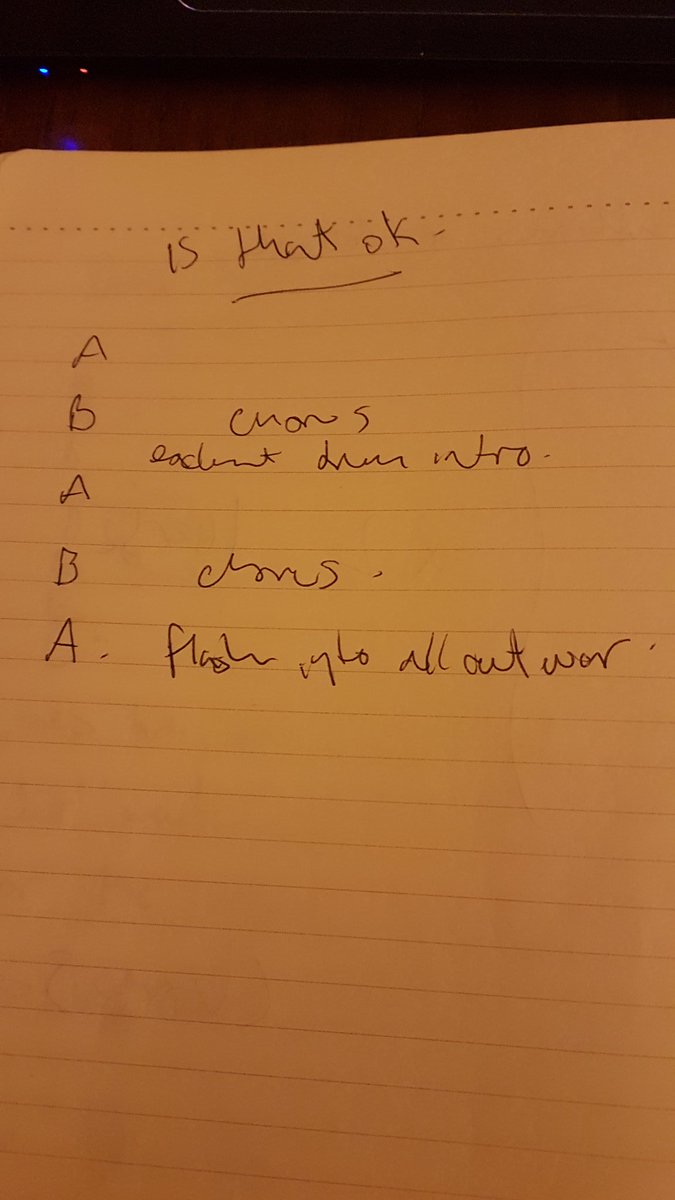 is that ok.
A
B chorus
drum intro.
A
B chorus.
A. flash into all out war.